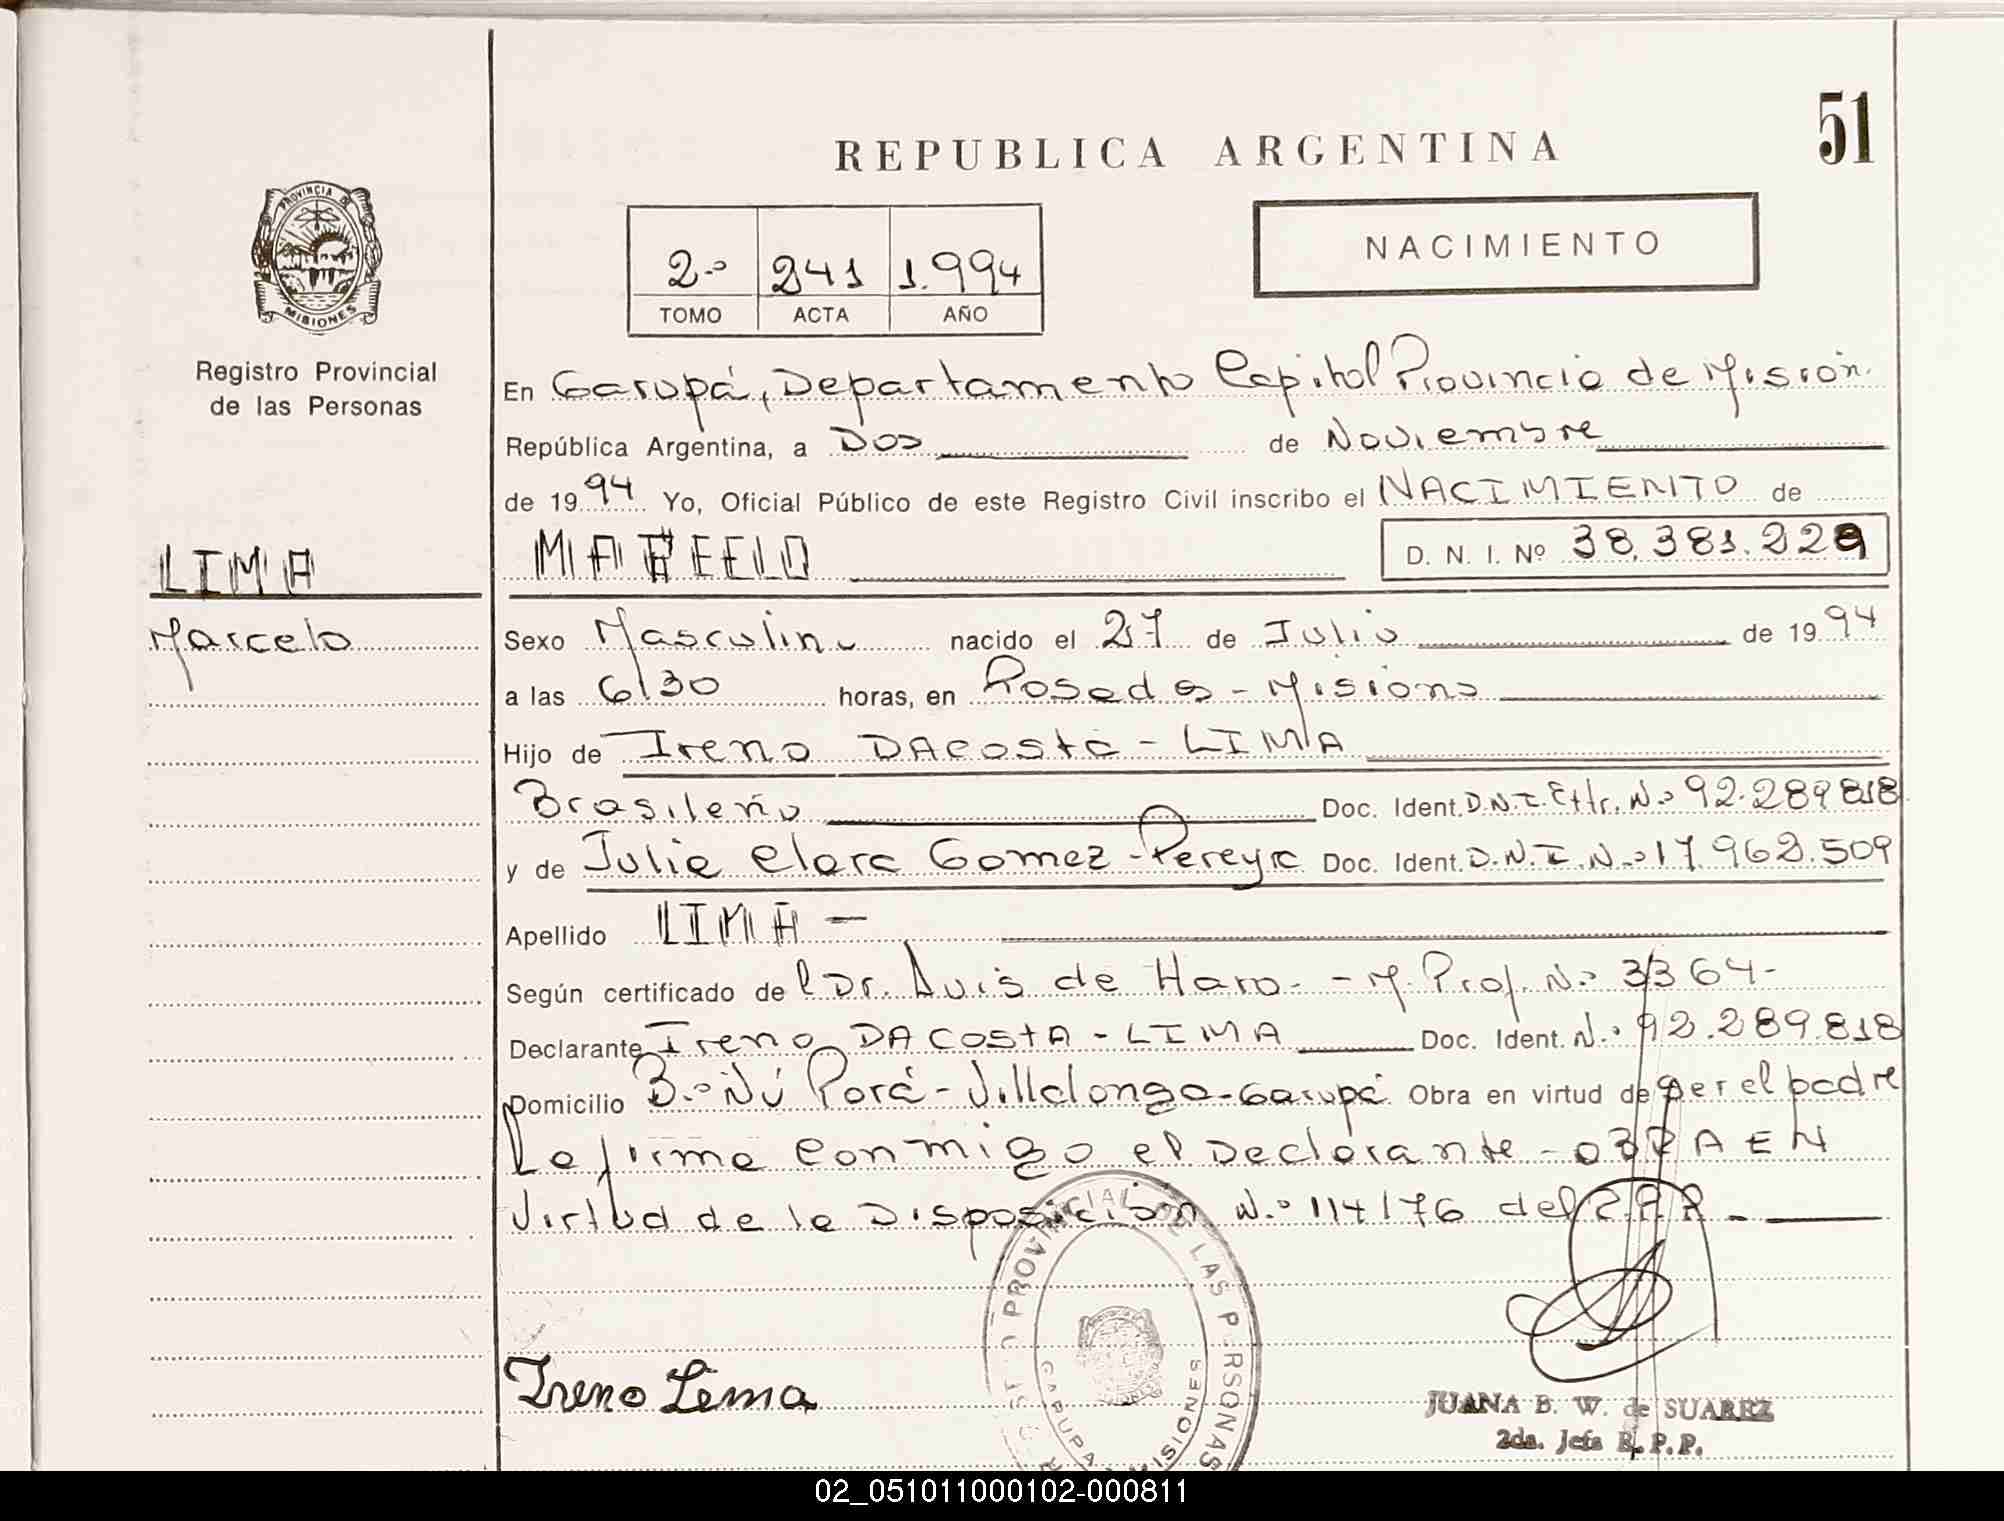 51
REPUBLICA ARGENTINA
PROVINCIA DE
MISIONES
NACIMIENTO
2.º 241 1.994
TOMO ACTA AÑO
Registro Provincial
de las Personas
En Garupá, Departamento Capital Provincia de Mision.
República Argentina, a Dos de Noviembre
de 1994 Yo, Oficial Público de este Registro Civil inscribo el NACIMIENTO de
LIMA
MARCELO D. N. I. Nº 38.381.229
Marcelo
Sexo Masculino nacido el 27 de Julio de 1994
a las 6/30 horas, en Posadas - Misiones
Hijo de Ireno DACOSTA - LIMA
Brasileño Doc. Ident. D.N.I. Extr. N.º 92.289.818
y de Julia Clara Gomez - Pereyra Doc. Ident. D.N.I. N.º 17.962.509
Apellido LIMA -
Según certificado del Dr. Luis de Haro. - M. Prof. N.º 3364-
Declarante Ireno DACOSTA - LIMA Doc. Ident. N.º 92.289.818
Domicilio B.º Ñú Porá - Villalonga - Garupá Obra en virtud de ser el padre
Lo firma conmigo el Declarante - OBRA EN
Virtud de la Disposición N.º 114/76 del R.P.P. -
PROVINCIAL DE LAS PERSONAS
GARUPA MISIONES
Ireno Lima
JUANA B. W. de SUAREZ
2da. Jefa R.P.P.
02_051011000102-000811